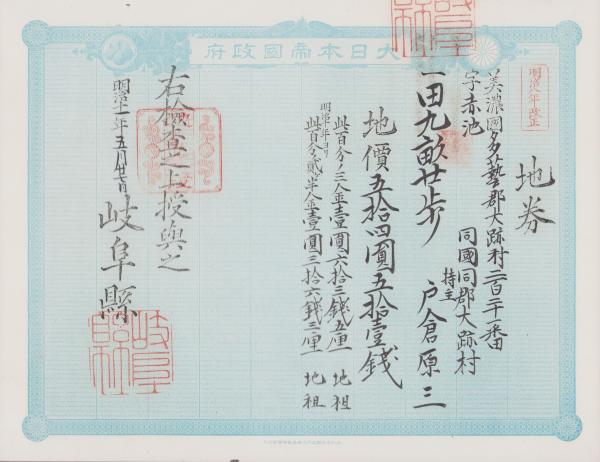 大日本帝國政府
明治八年改正
地券
美濃國多藝郡大跡村二百二十一番
字赤池
同國同郡大跡村
持主 戸倉原三
一田九畝廿歩
地價五拾四圓五拾壹錢
此百分ノ三金壹圓六拾三錢五厘 地租
明治十年ヨリ
此百分ノ貳半金壹圓三拾六錢三厘 地租
右檢査之上授與之
明治十一年五月廿七日
岐阜縣